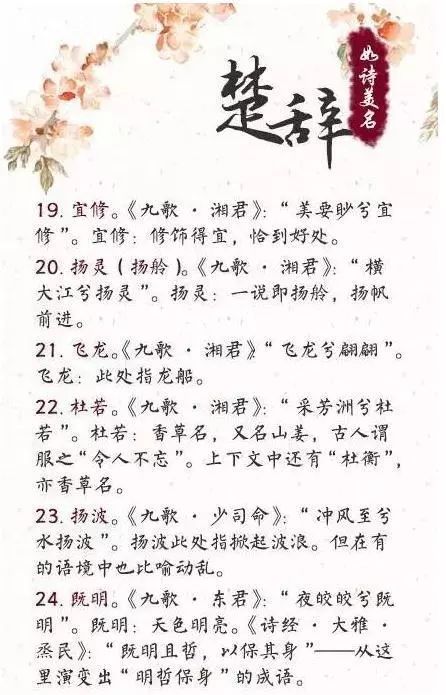 楚辞
如诗美名
19. 宜修。《九歌·湘君》：“美要眇兮宜
修”。宜修：修饰得宜，恰到好处。
20. 扬灵（扬舲）。《九歌·湘君》：“横
大江兮扬灵”。扬灵：一说即扬舲，扬帆
前进。
21. 飞龙。《九歌·湘君》“飞龙兮翩翩”。
飞龙：此处指龙船。
22. 杜若。《九歌·湘君》：“采芳洲兮杜
若”。杜若：香草名，又名山姜，古人谓
服之“令人不忘”。上下文中还有“杜衡”，
亦香草名。
23. 扬波。《九歌·少司命》：“冲风至兮
水扬波”。扬波此处指掀起波浪。但在有
的语境中也比喻动乱。
24. 既明。《九歌·东君》：“夜皎皎兮既
明”。既明：天色明亮。《诗经·大雅·
烝民》：“既明且哲，以保其身”——从这
里演变出“明哲保身”的成语。